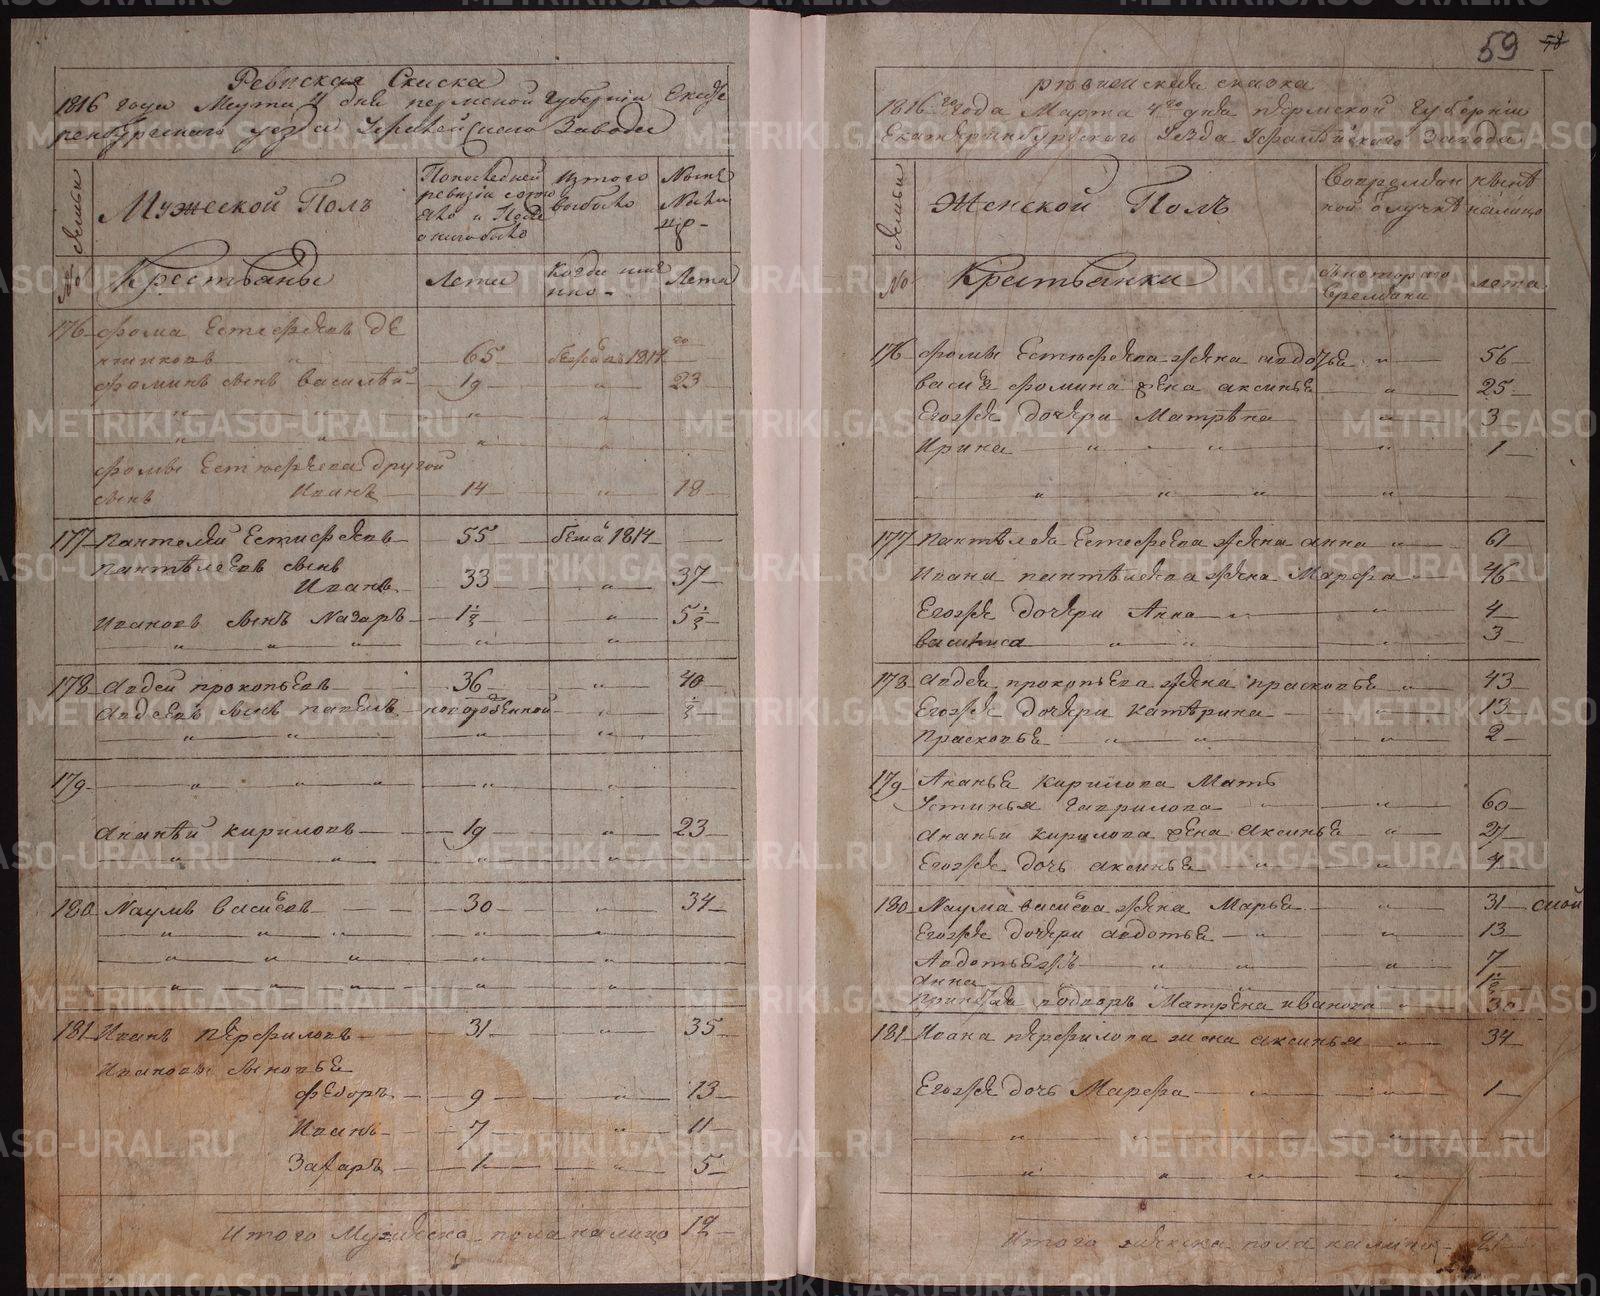 59
58
Ревиская Скаска
1816 года Марта 4 дня пермской Губернiи Екате
ренбурскаго уезда Уфалейскаго Заводу
№ семьи
Мужеской Полъ
Попоследней ревизiи состояло и После оного было
изтого выбыло
Ныне Налицо
Крестьяны
Лета
Когда имянно
Лета
176 фома Естефеевъ де
ктитковъ " 65 беженъ 1814го
фоминъ сынъ василей 19 " 23
" " " "
" " " "
фомы Естюфеева другой
сынъ Иванъ 14 " 18
177 пантелей Естифеевъ 55 бежа 1814
пантелеевъ сынъ
Иванъ 33 " 37
Ивановъ сынъ Назаръ 1½ " 5½
" " " " "
178 Авдей прокопьевъ 36 " 40
Авдеевъ сынъ павелъ новорожденной " ½
" " " "
179 " " " "
Ананей кириловъ 19 " 23
" " " "
180 Наумъ васиевъ 30 " 34
" " " " "
" " " " "
" " " " "
181 Иванъ перфиловъ 31 " 35
Ивановы сыновья
федоръ 9 " 13
Иванъ 7 " 11
Захаръ 1 " 5
Итого Мужеска пола налицо 19
ревиская скаска
1816го года Марта 4го дня пермской Губернiи
Екатеринбурскаго Уезда Уфалейскаго Завода
№ семьи
Женской Полъ
Вовременной отлучке
ныне налицо
Крестьянки
скотораго времени
лета
176 фомы Естюфеева жена авдотья " 56
васия фомина жена аксинья " 25
Егожъ дочери Матрена " 3
Ирина " " " " 1
" " " "
177 пантелея Естефеева жена анна " 61
Ивана пантелеева жена Марфа 46
Егожъ дочери Анна " " 4
василиса " " " 3
178 Авдея прокопьева жена прасковья " 43
Егожъ дочери катерина " 13
прасковья " " " 2
179 Ананья Кирилова Мать
Устинья гаврилова " " 60
Ананьи кирилова жена Аксинья " 27
Егожъ дочь аксинья " " 4
180 Наума васиева жена Марья " 31 сной
Егожъ дочери авдотья " " 13
Авдотья " " " 7
Анна " " " 1½
Матрена иванова " 30
181 Ивана перфилова жена аксинья " 34
Егожъ дочь Марфа " " 1
" " " "
" " " "
Итого женска пола налицо 21
METRIKI.GASO-URAL.RU